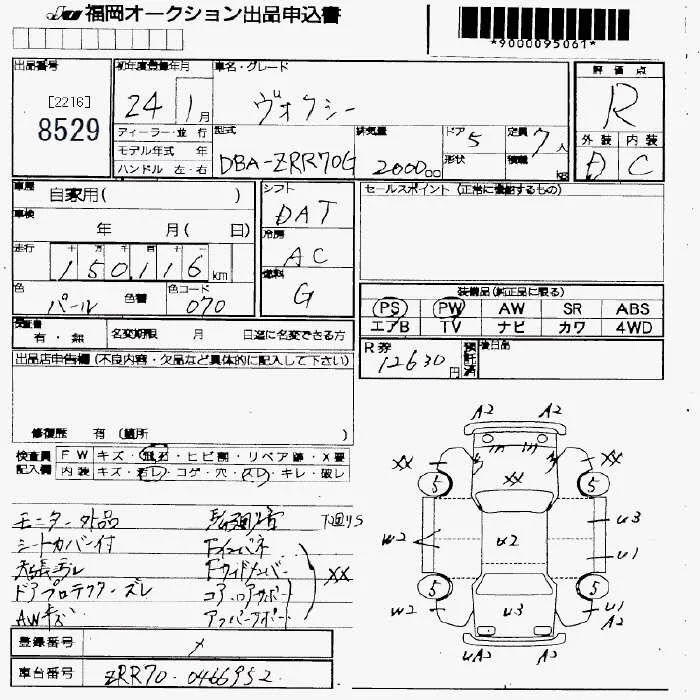 福岡オークション出品申込書
*9000095061*
出品番号
[2216]
8529
初年度登録年月
24 1月
車名・グレード
ヴォクシー
評価点
R
外装 内装
D C
ディーラー・並行
モデル年式 年
ハンドル 左・右
型式
DBA-ZRR70G
排気量
2000cc
ドア
5
形状
定員
7人
積載
kg
車歴
自家用( )
車検
年 月( 日)
走行
150,116km
色
パール
色替
色コード
070
シフト
DAT
冷房
AC
燃料
G
セールスポイント (正常に登記するもの)
装備品(純正品に限る)
PS PW AW SR ABS
エアB TV ナビ カワ 4WD
検査書
有・無
名変期限 月 日迄に名変できる方
R券
12630円
預託済
後日品
出品店申告欄 (不良内容・欠品など具体的に記入して下さい)
修復歴 有 (箇所 )
検査員
記入欄
FW キズ・飛石・ヒビ割・リペア跡・X要
内装 キズ・コゲ・穴・スレ・キレ・破レ
モニター外品
シートカバー付
ドアプロテクターズレ
AWキズ
下回りS
Fインパネ
コアロアサポート
XX
登録番号
車台番号
ZRR70-0466952
A2 A2
XX XX XX
5 5
W2 U2 U3
U1
5 5
W2 U3 U1
A2
UA2 A2